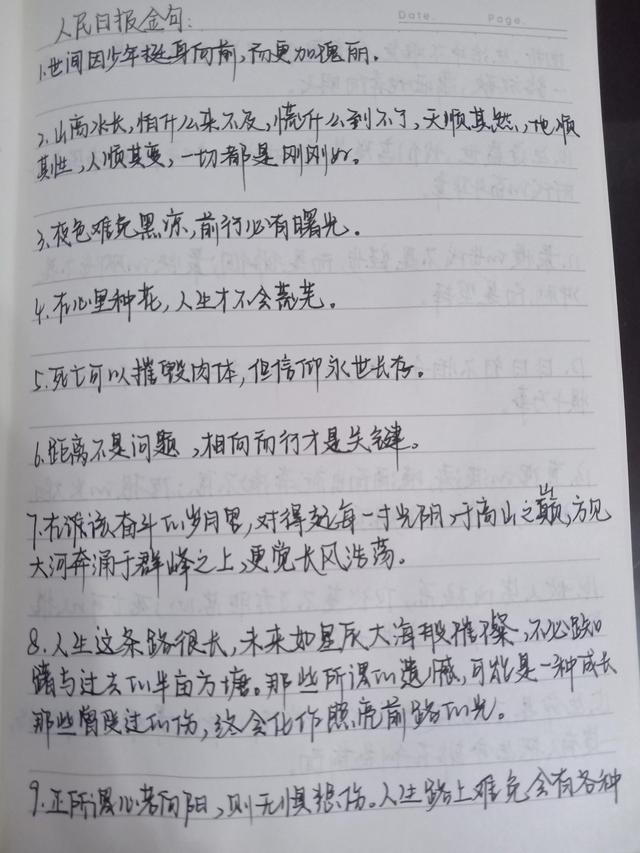 Date. Page.
人民日报金句：
1.世间因少年挺身向前，而更加瑰丽。
2.山高水长，怕什么来不及，慌什么到不了，天顺其然，地顺
其性，人顺其变，一切都是刚刚好。
3.夜色难免黑凉，前行必有曙光。
4.在心里种花，人生才不会荒芜。
5.死亡可以摧毁肉体，但信仰永世长存。
6.距离不是问题，相向而行才是关键。
7.在该奋斗的岁月里，对得起每一寸光阴，于高山之巅，方见
大河奔涌于群峰之上，更觉长风浩荡。
8.人生这条路很长，未来如星辰大海般璀璨，不必踟
蹰与过去的半亩方塘。那些所谓的遗憾，可能是一种成长
那些曾受过的伤，终会化作照亮前路的光。
9.正所谓心若向阳，则无惧悲伤。人生路上难免会有各种